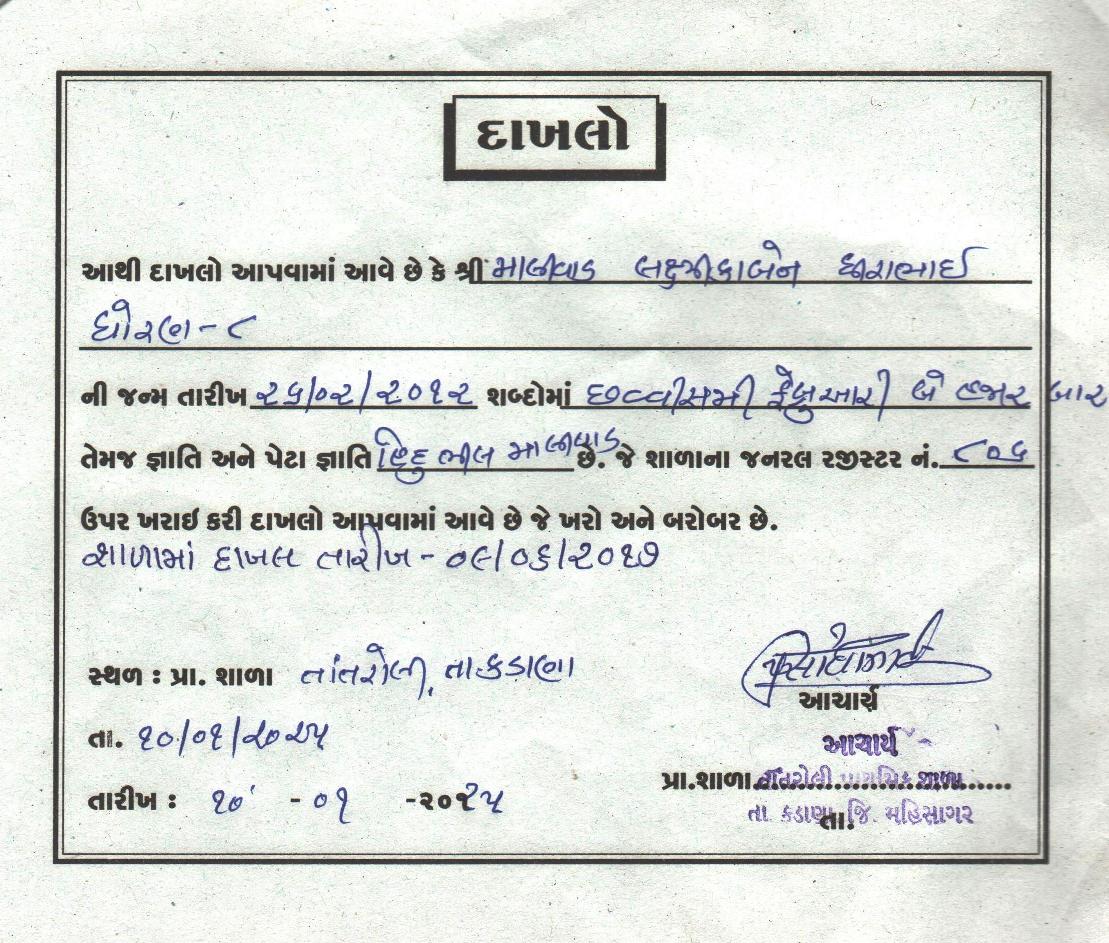 દાખલો
આથી દાખલો આપવામાં આવે છે કે શ્રી માલીવાડ લક્ષ્મીકાબેન ધીરાભાઈ
ધોરણ - ૮
ની જન્મ તારીખ ૨૬/૦૨/૨૦૧૨ શબ્દોમાં છવ્વીસમી ફેબ્રુઆરી બે હજાર બાર
તેમજ જ્ઞાતિ અને પેટા જ્ઞાતિ હિંદુ ભીલ માલીવાડ છે. જે શાળાના જનરલ રજીસ્ટર નં. ૮૦૬
ઉપર ખરાઇ કરી દાખલો આપવામાં આવે છે જે ખરો અને બરોબર છે.
શાળામાં દાખલ તારીખ - ૦૯/૦૬/૨૦૧૭
સ્થળ : પ્રા. શાળા તાંતરોલી, તા.કડાણા
આચાર્ય
તા. ૧૦/૦૧/૨૦૨૫
આચાર્ય
પ્રા.શાળા તાંતરોલી પ્રાથમિક શાળા
તારીખ : ૧૦ - ૦૧ -૨૦૨૫
તા. કડાણા, જિ. મહિસાગર
તા.